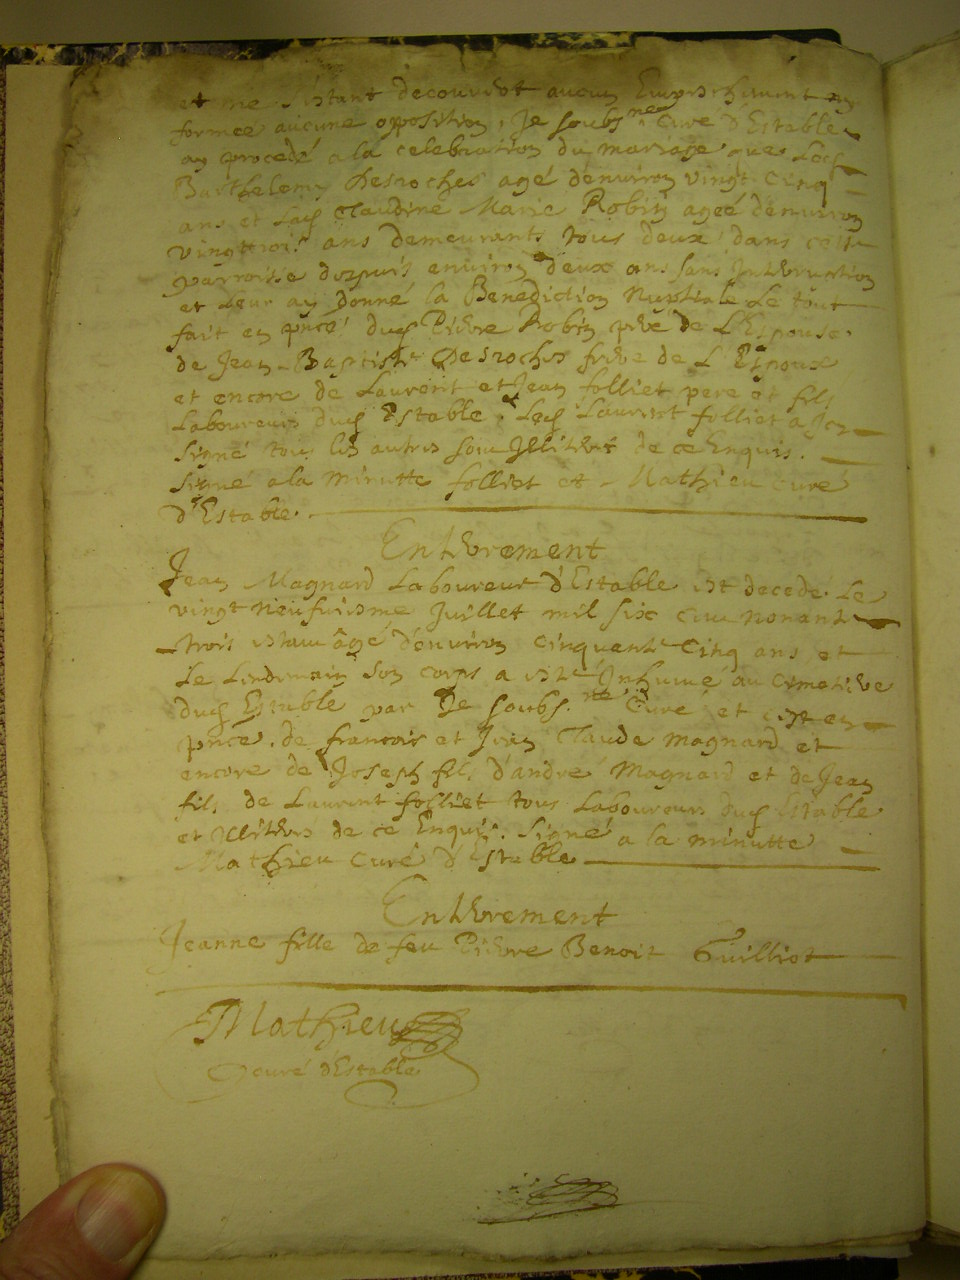 et ne s'estant decouvert aucun Empechement ny
formée aucune opposition, Je soubs.né Curé d'Estable
ay procedé a la celebration du mariage que Led.
Barthelemy Desroches agé denviron vingt-cinq
ans et Lad. Claudine Marie Robin ageé denviron
vingttrois ans demeurants tous deux dans cette
parroisse depuis environ deux ans sans Interuption
et Leur ay donné la Benediction Nuptiale Le tout
fait en pnce dud. Pierre Robin pere de L'Espouse
de Jean-Baptiste Desroches frere de L'Espoux
et encore de Laurent et Jean folliet pere et fils
Laboureurs dud. Estable. Led. Laurent folliet a Icy
signé tous les autres sont Illiteres de ce Enquis.
Signé a la minutte folliet et Mathieu curé
d'Estable.
Enterrement
Jean Magnard Laboureur d'Estable est decedé Le
vingt neufuiesme Juillet mil six cent nonante
trois estant âgé d'environ cinquante Cinq ans et
Le Lendemain son corps a esté Inhumé au Cimetiere
dud. Estable par Je soubs.né Curé et c'est en
pnce de francois et Jean Claude Magnard et
encore de Joseph fils d'andré Magnard et de Jean
fils de Laurent folliet tous Laboureurs dud. Estable
et Illiteres de ce Enquis. Signé a la minutte
Mathieu Curé d'Estable
Enterrement
Jeanne fille de feu Pierre Benoit Guilliot
Mathieu
curé d'Estable